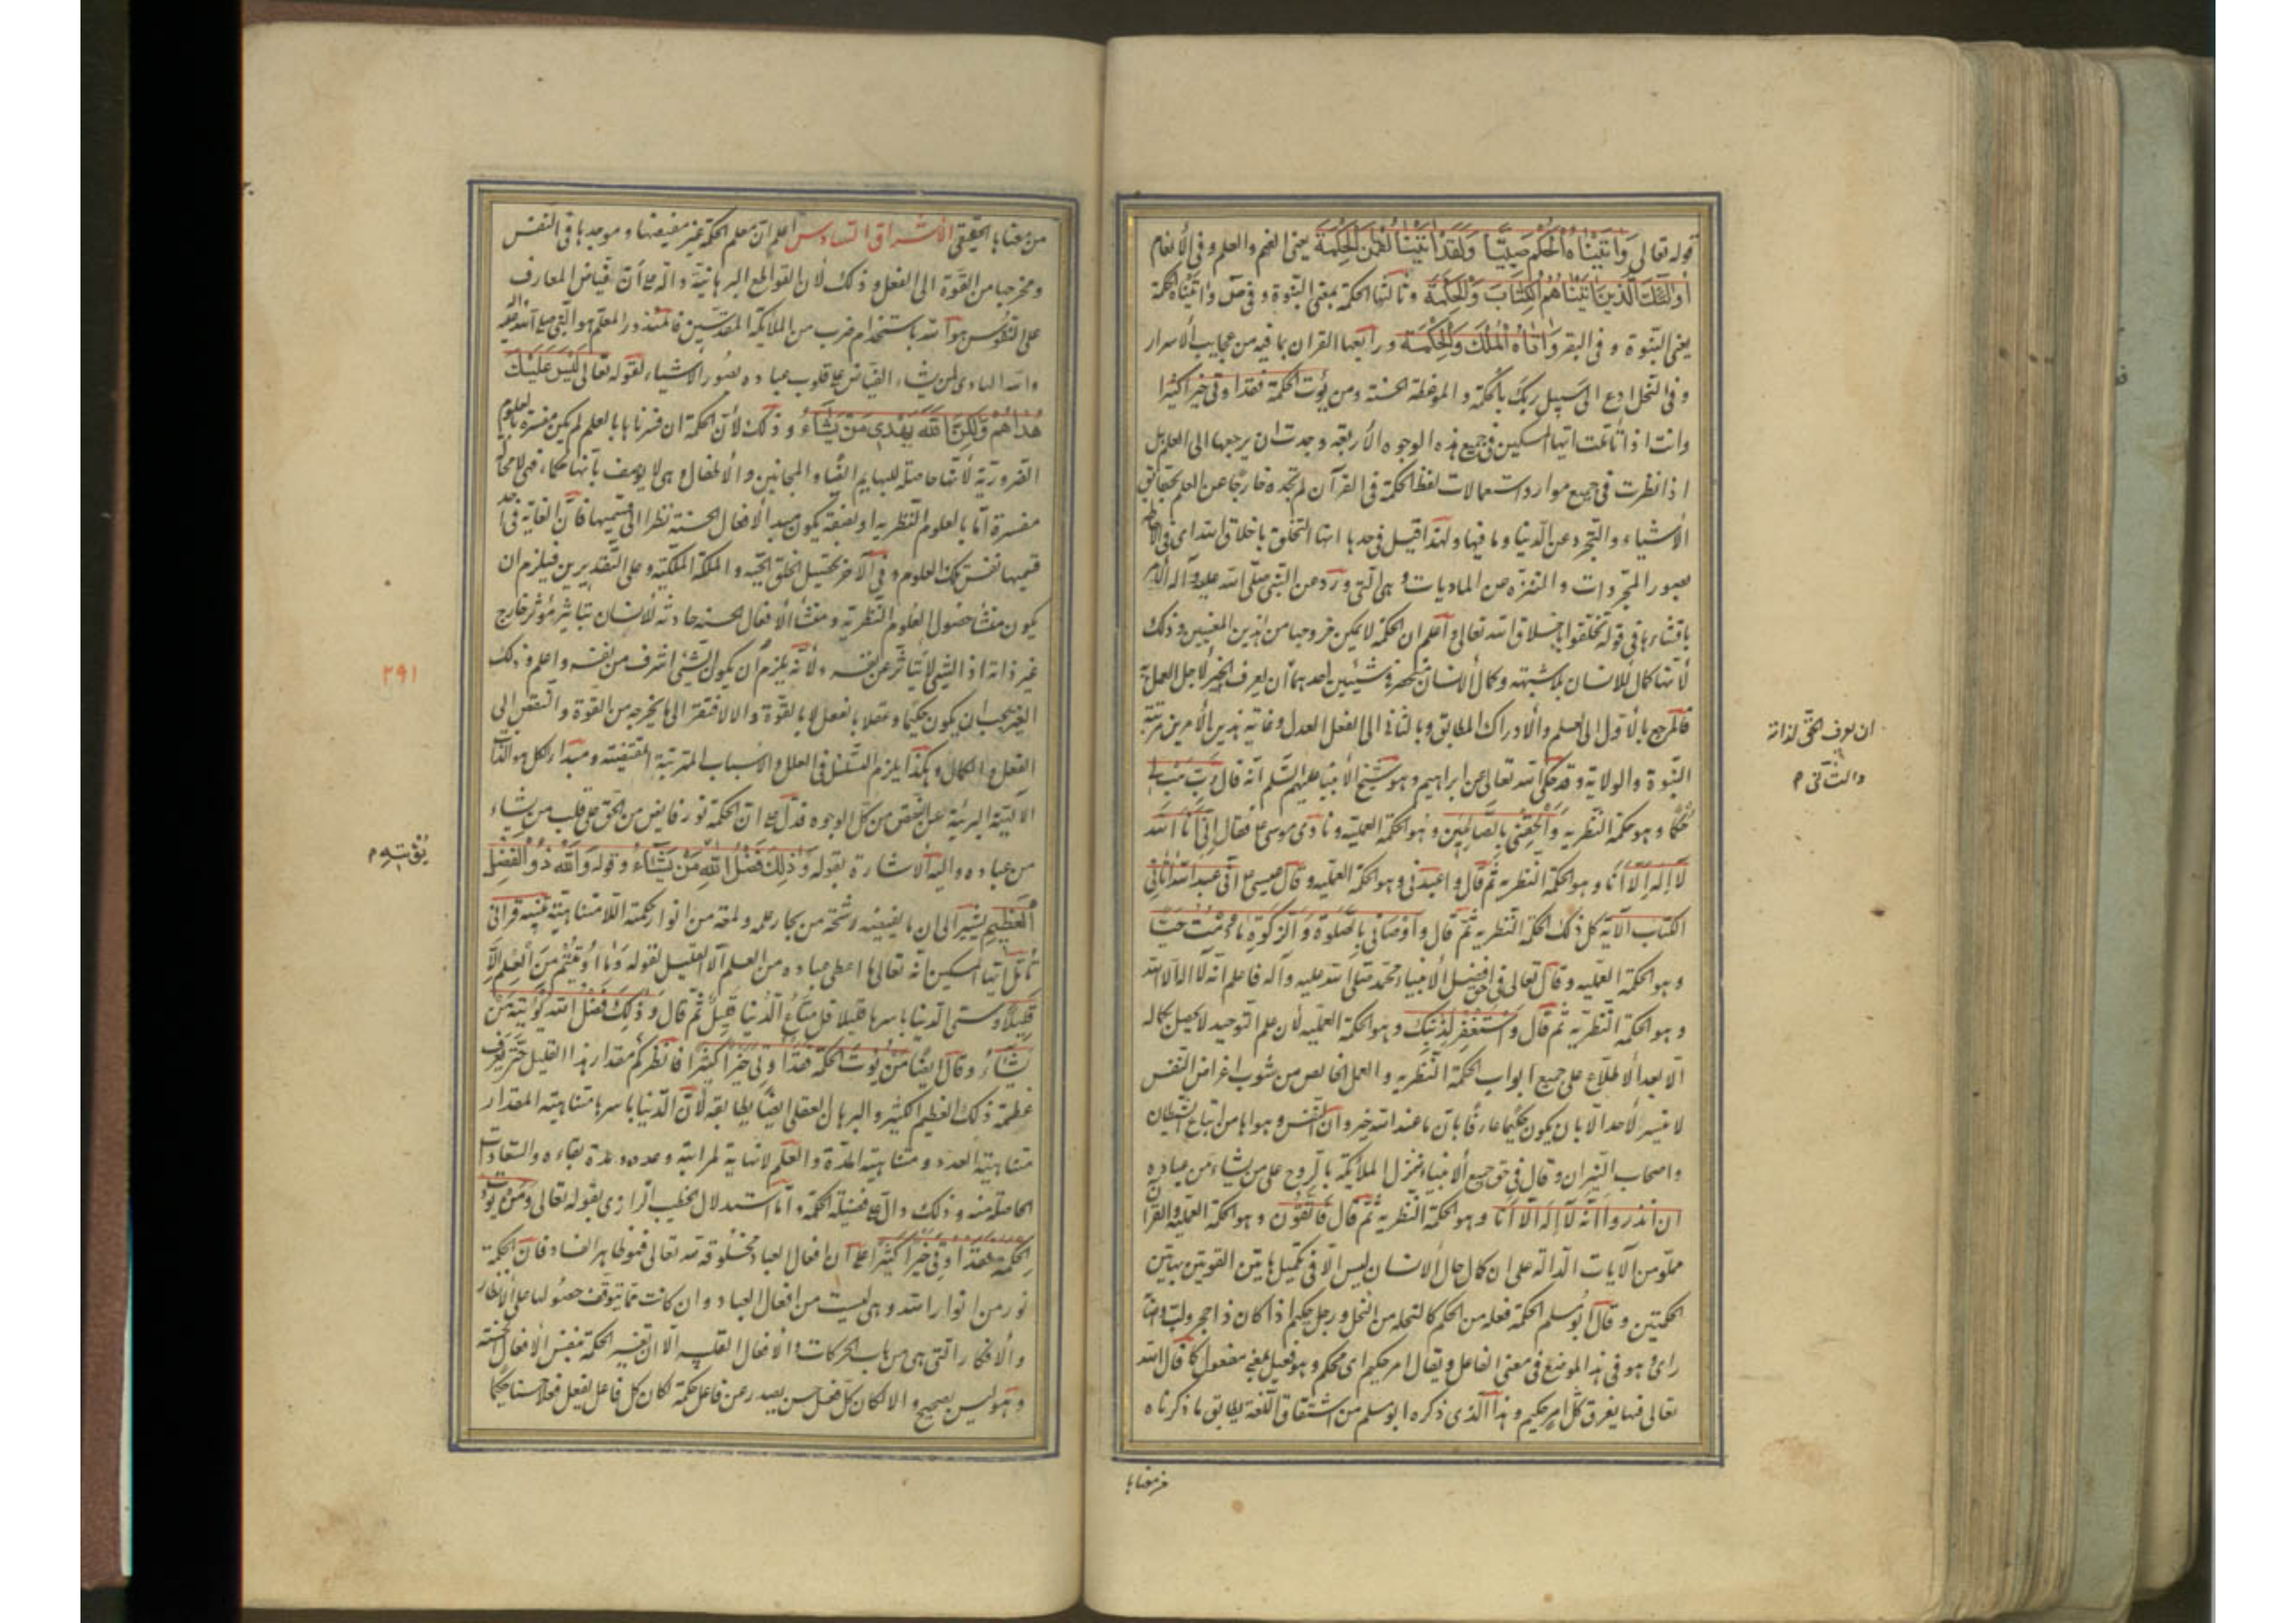 قوله تعالى وَاٰتَيْنَاهُ الْحُكْمَ صَبِيًّا وَلَقَدْ اٰتَيْنَا لُقْمٰنَ الْحِكْمَةَ يعنى الفهم والعلم و فى الأنعام
أُولٰئِكَ الَّذِينَ اٰتَيْنَاهُمُ الْكِتَابَ وَالْحِكْمَةَ وثالثها الحكمة بمعنى النبوة و فى ص واتيناه الحكمة
يعنى النبوة و فى البقر وَاٰتَاهُ الْمُلْكَ وَالْحِكْمَةَ ورابعها القران بما فيه من عجايب الأسرار
و فى النحل ادع الى سبيل ربك بالحكمة و الموعظة الحسنة ومن يؤت الحكمة فقد اوتى خيرا كثيرا
وانت اذا تأملت ايها المسكين فى جميع هذه الوجوه الأربعة وجدت ان يرجعها الى العلم بل
اذا نظرت فى جميع موارد استعمالات لفظ الحكمة فى القرآن لم تجده خارجا عن العلم بحقايق
الأشياء والتجرد عن الدنيا وما فيها ولهذا قيل فى حدها انها التخلق باخلاق الله اى فى الأحاطة
بصور المجردات و التنزه عن الماديات و هى التى ورد عن النبى صلى الله عليه وآله الأمر
بافشاءها فى قوله تخلقوا باخلاق الله تعالى و اعلم ان الحكمة لا يمكن خروجها من هذين المعنيين وذلك
لأنها كمال للانسان بلا شبهة وكمال الانسان منحصر فى شيئين احدهما أن يعرف الخير لاجل العمل به
فالمرجع بالأول الى العلم والأدراك المطابق وبالثانى الى الفعل العدل وغاية هذين الأمرين مرتبة
النبوة والولاية وقد حكى الله تعالى عن ابراهيم وهو شيخ الأنبياء عليهم السلم انه قال رَبِّ هَبْ لِى
حُكْمًا وهو حكمة النظرية وَأَلْحِقْنِى بِالصَّالِحِينَ وهو الحكمة العملية ونادى موسى ع فقال اِنِّى اَنَا اللّٰهُ
لَا اِلٰهَ اِلَّا اَنَا وهو الحكمة النظرية ثم قال واعبدنى وهو الحكمة العملية وقال عيسى ع انى عبد الله اتانى
الكتاب الآية كل ذلك الحكمة النظرية ثم قال وَاَوْصَانِى بِالصَّلٰوةِ وَالزَّكٰوةِ مَا دُمْتُ حَيًّا
وهو الحكمة العملية وقال تعالى فى حق افضل الأنبياء محمد صلى الله عليه وآله فاعلم انه لا اله الا الله
وهو الحكمة النظرية ثم قال وَاسْتَغْفِرْ لِذَنْبِكَ وهو الحكمة العملية لأن علم التوحيد لا يحصل بكماله
الا بعد الأطلاع على جميع ابواب الحكمة النظرية والعمل الخالص من شوب اغراض النفس
لا يتيسر لأحد الا بان يكون حكيما عارفا بان ما عند الله خير وان النفس وهواها من اتباع الشيطان
واصحاب النيران وقال فى حق جميع الأنبياء ينزل الملايكة بالروح على من يشاء من عباده
ان انذروا اَنَّهُ لَا اِلٰهَ اِلَّا اَنَا وهو الحكمة النظرية ثم قال فَاتَّقُونِ وهو الحكمة العملية والقران
مملو من الآيات الدالة على ان كمال حال الانسان ليس الا فى تكميل هاتين القوتين بهاتين
الحكمتين وقال ابو مسلم الحكمة فعله من الحكم كالنحلة من النحل ورجل حكيم اذا كان ذا حجر ولب واصابة
راى وهو فى هذا الموضع فى معنى الفاعل ويقال امر حكيم اى محكم وهو فعيل بمعنى مفعول كما قال الله
تعالى فيها يفرق كل امر حكيم وهذا الذى ذكره ابو مسلم من اشتقاق اللغة يطابق ما ذكرناه
من معناها
ان يعرف الحق لذاته
والثانى م
من معناها الحقيقى الأشراق السادس اعلم ان معلم الحكمة غير مفيضها و موجدها فى النفس
ومخرجها من القوة الى الفعل و ذلك لأن القواطع البرهانية دالة على أن فياض المعارف
على النفوس هو الله باستخدام ضرب من الملايكة المقدسين فالمنذر والمعلم هو النبى صلى الله عليه وآله
والله الهادى لمن يشاء الفياض على قلوب عباده بصور الأشياء لقوله تعالى لَيْسَ عَلَيْكَ
هُدٰاهُمْ وَلٰكِنَّ اللّٰهَ يَهْدِى مَنْ يَشَاءُ و ذلك لأن الحكمة ان فسرناها بالعلم لم يكن مفسرة بالعلوم
الضرورية لأنها حاصلة للبهايم ايضا و المجانين و الأطفال وهى لا يوصف بأنها حكماء فهى لا محالة
مفسرة اما بالعلوم النظرية او بصفة يكون مبدء الأفعال الحسنة نظرا الى قسميها فان الغاية فى احد
قسميها نفس تلك العلوم و فى الآخر تحصيل الخلق الحميد و الملكة الملكية وعلى التقديرين فيلزم ان
يكون منشأ حصول العلوم النظرية ومنشأ الأفعال الحسنة حادثة للأنسان بتاثير مؤثر خارج
غير ذاته اذ الشئ لا يتاثر عن نفسه ولأنه يلزم أن يكون الشئ اشرف من نفسه واعلم وذلك
الغير يجب ان يكون حكيما وعقلا بالفعل لا بالقوة والا لافتقر الى ما يخرجه من القوة والنقص الى
الفعل والكمال وهكذا يلزم التسلسل فى العلل والاسباب المترتبة المقتضية ومبدا الكل هو الذات
الالهية البرئية عن النقص من كل الوجوه فدل على ان الحكمة نور فايض من الحق على قلب من يشاء
من عباده واليه الأشارة بقوله وَذٰلِكَ فَضْلُ اللّٰهِ مَنْ يَشَاءُ وقوله وَاللّٰهُ ذُو الْفَضْلِ
الْعَظِيمِ يشير الى ان ما يفيضه رشحة من بحار علمه ولمعة من انوار حكمته اللامتناهية تنبيه قرآنى
تأمل ايها المسكين انه تعالى ما اعطى عباده من العلم الا القليل لقوله وَمَا اُوتِيتُمْ مِنَ الْعِلْمِ اِلَّا
قَلِيلًا وسمى الدنيا باسرها قليلا قل مَتَاعُ الدُّنْيَا قَلِيلٌ ثم قال وَذٰلِكَ فَضْلُ اللّٰهِ يُؤْتِيهِ مَنْ
يَشَاءُ وقال ايضا مَنْ يُؤْتَ الحكمة فَقَدْ اُوتِىَ خَيْرًا كَثِيرًا فانظر كم مقدار هذا القليل حتى تعرف
عظمة ذلك العظيم الكثير والبرهان العقلى ايضا يطابقه لأن الدنيا باسرها متناهية المقدار
متناهية العدد ومتناهية المدة والعلم لا نهاية لمراتبه وعدده ومدة بقاءه والسعادات
الحاصلة منه وذلك دال على فضيلة الحكمة و اما استدلال الخطيب الرازى بقوله تعالى وَمَنْ يُؤْتَ
الحكمة فَقَدْ اُوتِىَ خَيْرًا كَثِيرًا على ان افعال العباد مخلوقة لله تعالى فهو ظاهر الفساد فان الحكمة
نور من انوار الله وهى ليست من افعال العباد وان كانت مما يتوقف حصولها على الأنظار
والأفكار التى هى من باب الحركات والأفعال القلبيه الا ان تفسير الحكمة بنفس الأفعال الحسنة
وهو ليس بصحيح والا لكان كل فعل حسن يصدر عن فاعل حكمة لكان كل فاعل يفعل فعلا حسنا حكيما
٢٩١
يؤتيه م